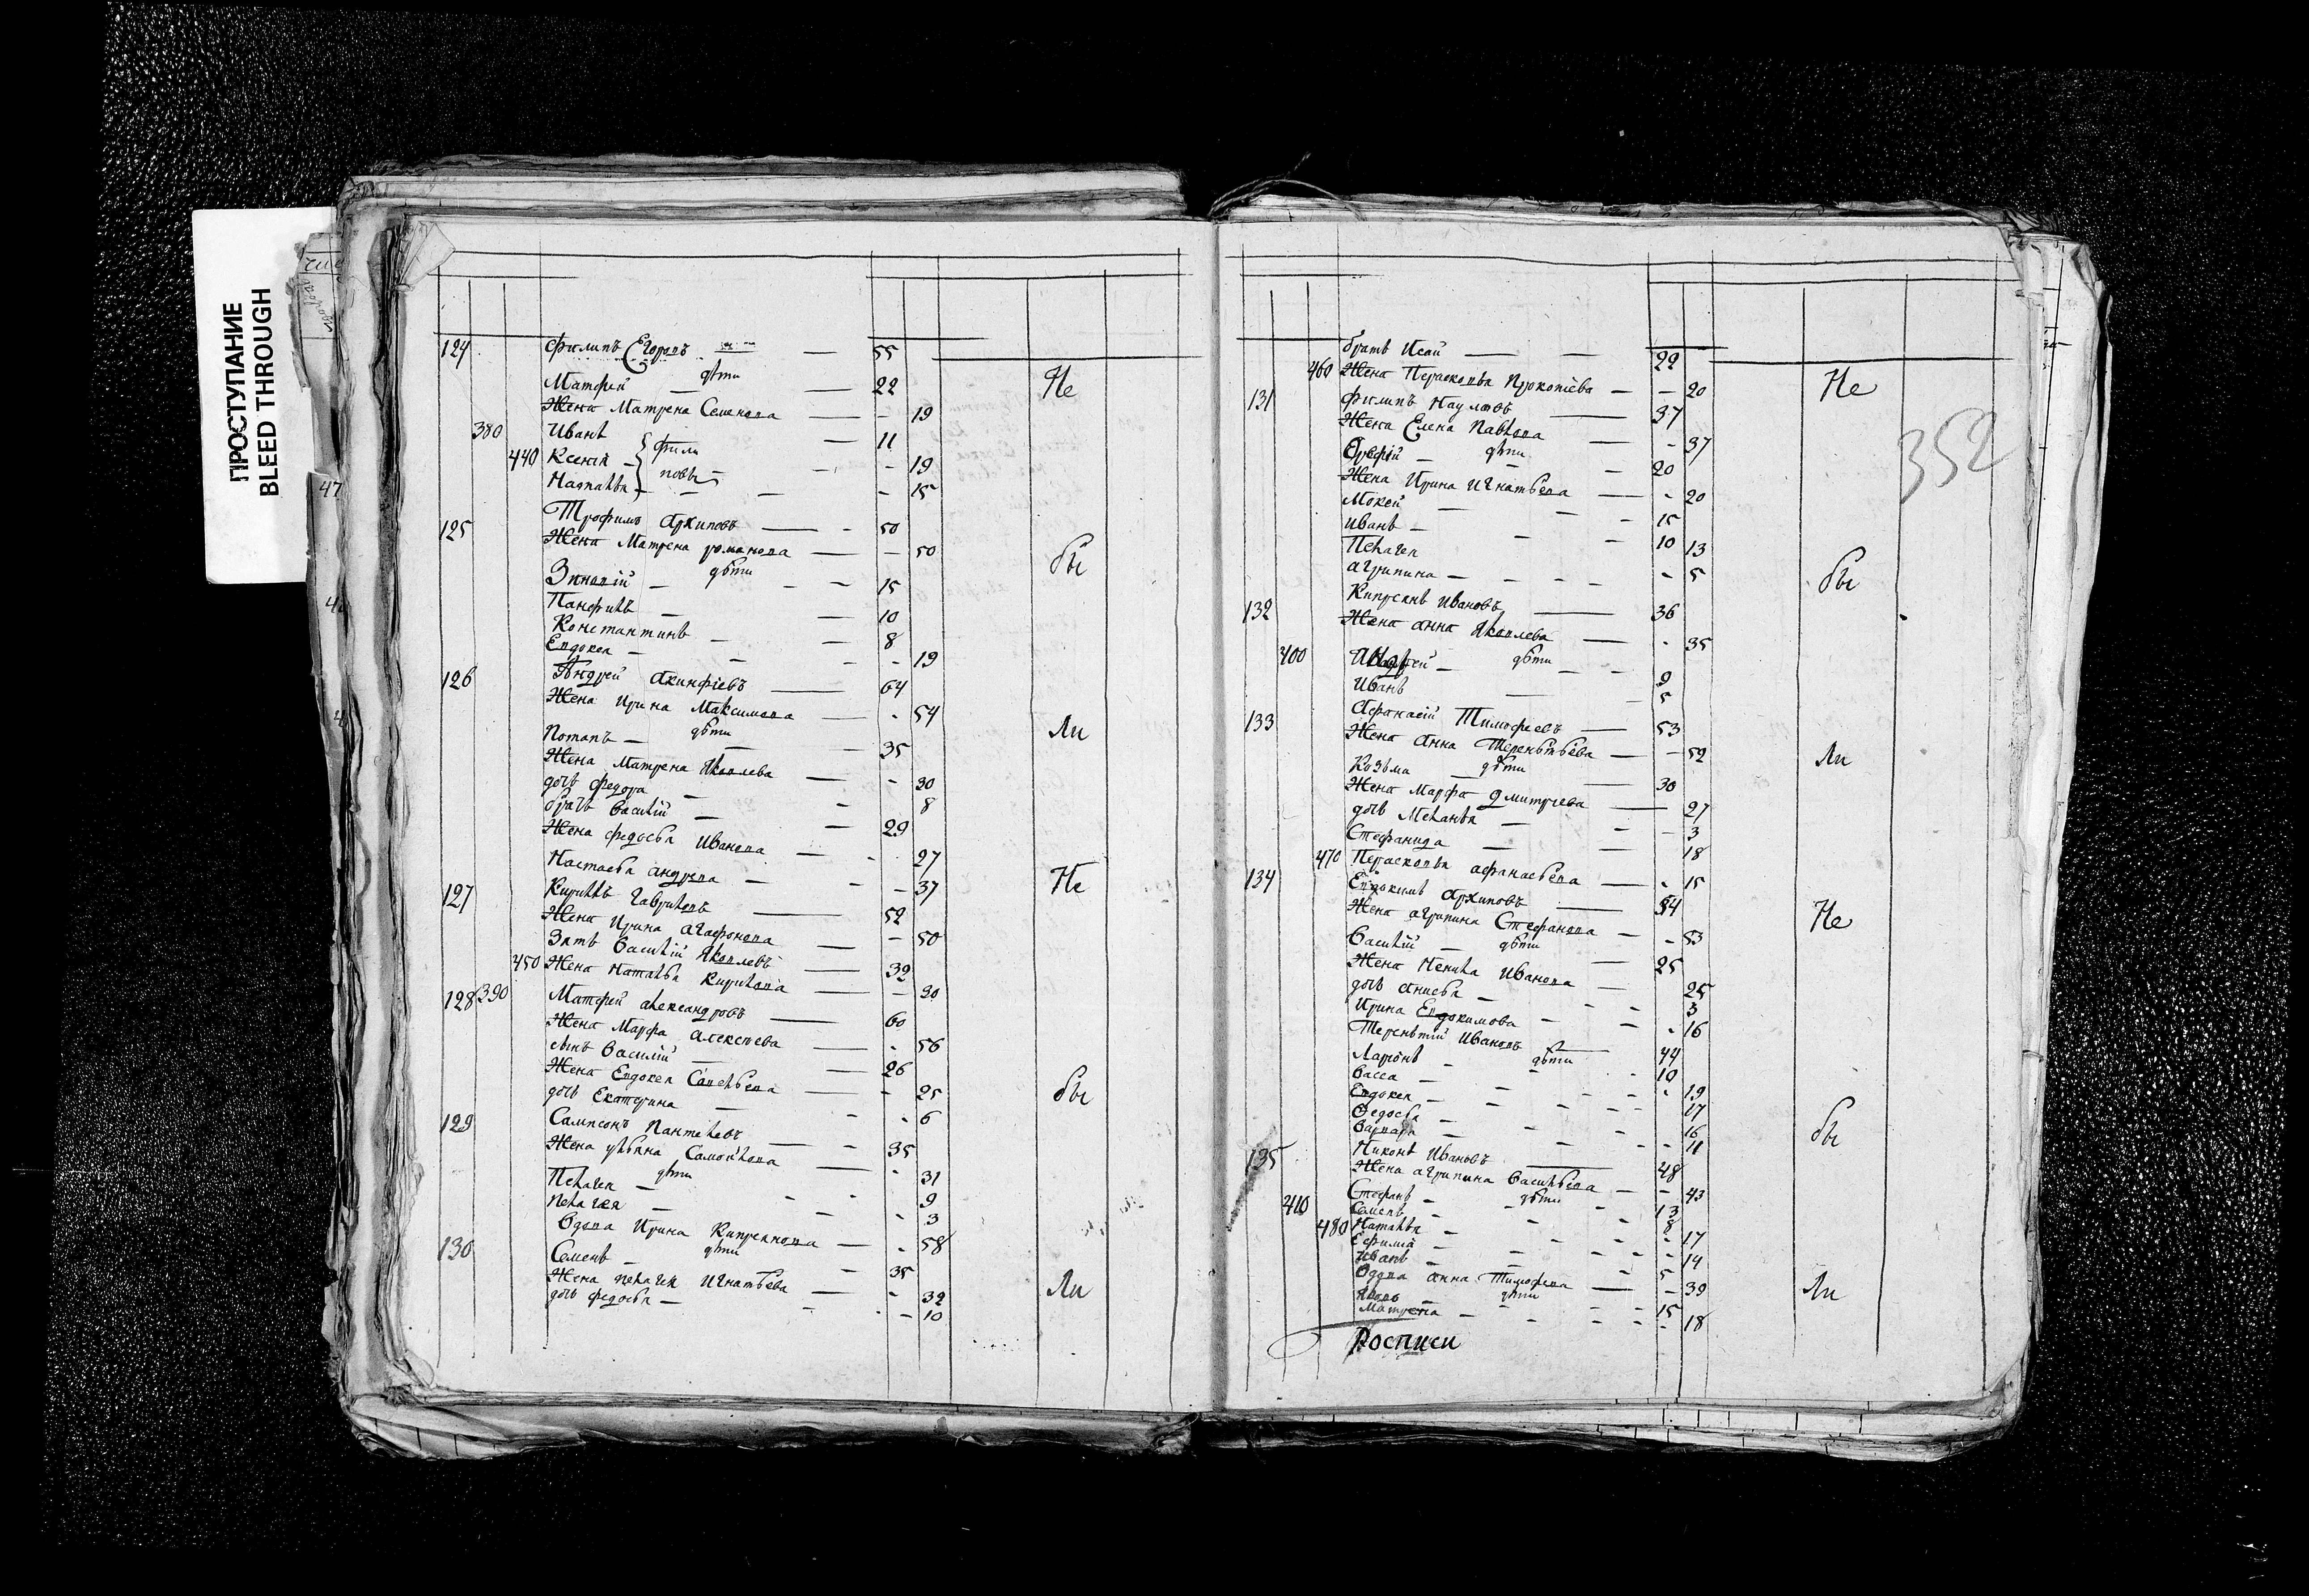 ПРОСТУПАНИЕ
BLEED THROUGH
124 Филипъ Егоровъ — 55
дѣти
Матфей — 22 Не
Жена Матрена Семенова — 19
380 Иванъ — 11
440 Ксенія — фили 19
Наталья — повы 15
125 Трофимъ Архиповъ — 50
Жена Матрена романова — 50
дѣти бы
Зиновій — 15
Панфилъ — 10
Константинъ — 8
Евдокея — 19
126 Андрей Акинфіевъ — 64
Жена Ирина Максимова — 54
дѣти Ли
Потапъ — 35
Жена Матрена Яковлева — 30
дочь Федора — 8
братъ Василій — 29
Жена Федосья Иванова — 27
Настасья андрева — 37 Не
127 Кирилъ Гавриловъ — 52
Жена Ирина агафонова — 50
Зять Василій Яковлевъ — 32
450 Жена Наталья Кирилова — 30
128 390 Матфей александровъ — 60
Жена Марфа Алексѣева — 56
сынъ Василій — 26
Жена Евдокея Савельева — 25 бы
дочь Екатерина — 6
129 Сампсонъ Пантелевъ — 35
Жена ульяна Самойлова — 31
дѣти
Пелагея — 9
пелагея — 3
130 Вдова Ирина Кипреянова — 58
дѣти
Семенъ — 35
Жена пелагея Игнатьева — 32 Ли
дочь федосья — 10
братъ Исай — 22
460 Жена Парасковья Прокопіева — 20 Не
131 Филипъ Наумовъ — 37
Жена Елена Павлова — 37
352
дѣти
Ерефій — 20
Жена Ирина Игнатьева — 20
Мокей — 15
иванъ — 10
Пелагея 13
агрипина — 5 бы
132 Кипреянъ Ивановъ — 36
Жена анна Яковлева — 35
дѣти
400 — 9
Иванъ — 5
133 Афанасій Тимофеевъ — 53
Жена Анна Терентьева — 52
дѣти Ли
Козьма — 30
Жена Марфа Дмитриева — 27
дочь Меланья — 3
Стефанида — 18
470 Парасковья афанасьева — 15
134 Евдокимъ Архиповъ — 54
Жена агрипина Стефанова — 53 Не
дѣти
Василій — 25
Жена Ненила Иванова — 25
дочь Анисья — 3
Ирина Евдокимова — 16
Терентій Ивановъ — 44
дѣти
Ларіонъ — 10
Васса — 19
Евдокея — 17
Федосья — 16
Варвара — 11 бы
135 Никонъ Ивановъ — 48
Жена агрипина Васильева — 43
дѣти
Стефанъ — 13
410 Семенъ — 8
480 Наталья — 17
Ефимія — 14
Иванъ — 5
Вдова анна Тимофева — 39
дѣти Ли
Яковъ — 15
Матрена — 18
Росписи